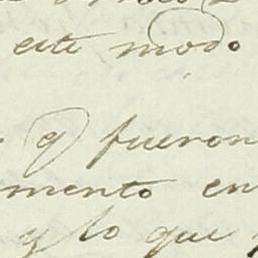 este modo
q fueron
mento en
y lo que